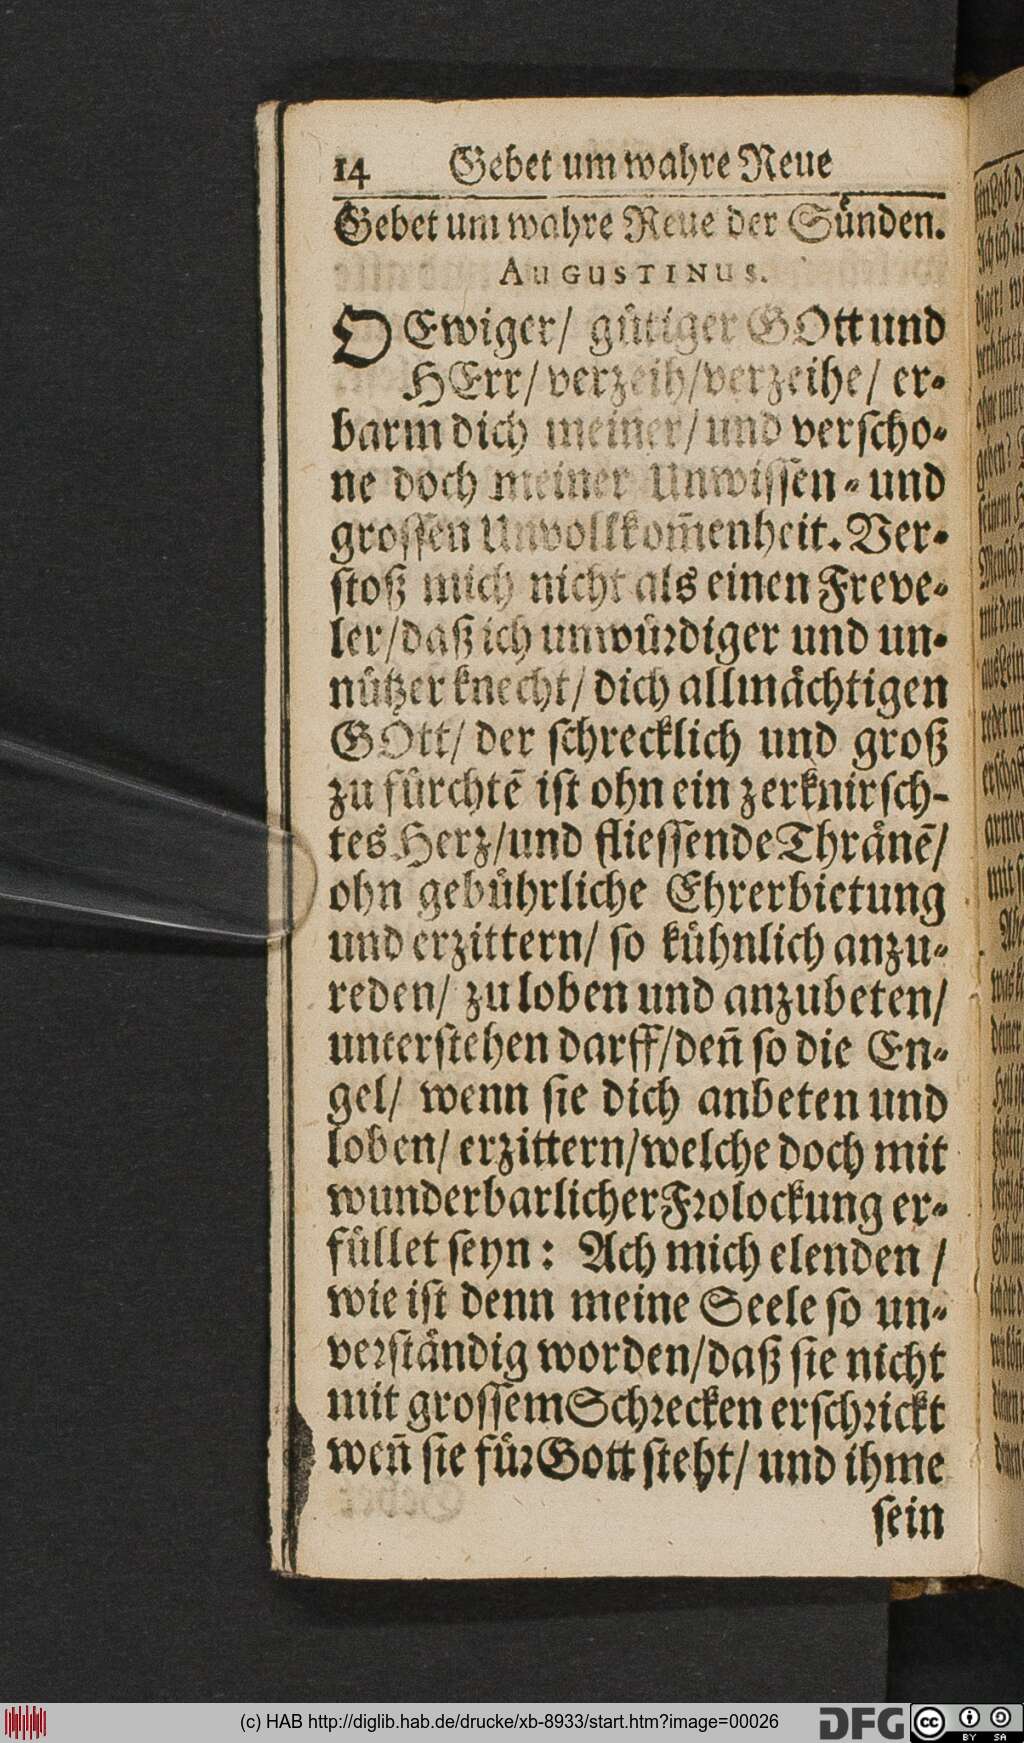 14 Gebet um wahre Reue
Gebet um wahre Reue der Sünden.
AuGUSTINUS.
O Ewiger/ gütiger GOtt und
HErr/ verzeih/verzeihe/ er-
barm dich meiner/ und verscho-
ne doch meiner Unwissen- und
grossen Unvollkom̃enheit. Ver-
stoß mich nicht als einen Freve-
ler/daß ich unwürdiger und un-
nützer knecht/ dich allmächtigen
GOtt/ der schrecklich und groß
zu fürchtẽ ist ohn ein zerknirsch-
tes Herz/und fliessende Thränẽ/
ohn gebührliche Ehrerbietung
und erzittern/ so kühnlich anzu-
reden/ zu loben und anzubeten/
unterstehen darff/deñ so die En-
gel/ wenn sie dich anbeten und
loben/ erzittern/welche doch mit
wunderbarlicher Frolockung er-
füllet seyn: Ach mich elenden /
wie ist denn meine Seele so un-
verständig worden/daß sie nicht
mit grossem Schrecken erschrickt
weñ sie für Gott steht/ und ihme
sein
(c) HAB http://diglib.hab.de/drucke/xb-8933/start.htm?image=00026
DFG
cc BY SA